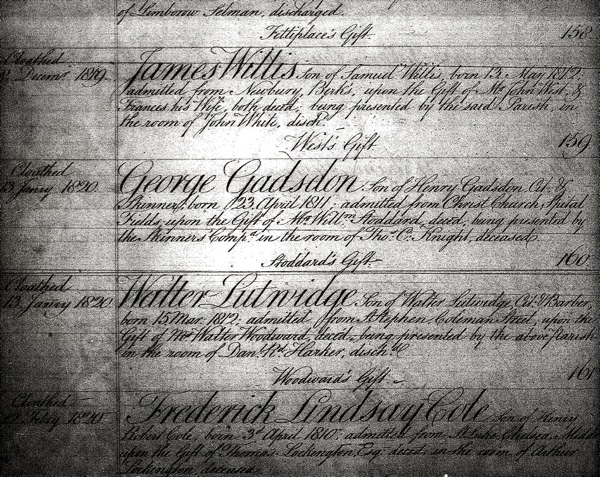 of Limborow Selman, discharged.
Fettiplace's Gift. 158
Cloathed
Decemr. 1819 James Willis Son of Samuel Willis, born 13 May 1812,
admitted from Newbury, Berks, upon the Gift of Mr. John West, &
Frances his Wife, both decd, being presented by the said Parish, in
the room of John White, disch.
West's Gift 159
Cloathed
13 Janry 1820 George Gadsdon Son of Henry Gadsdon Cit. &
Skinner, born 23 April 1811; admitted from Christ Church, Spital
Fields, upon the Gift of Mr. Willm Stoddard, decd, being presented by
the Skinners Compa. in the room of Thos. C. Knight, deceased
Stoddard's Gift 160
Cloathed
13 Janry 1820 Walter Lutwidge Son of Walter Lutwidge Cit. & Barber,
born 15 Mar. 1812, admitted from St Stephen, Coleman Street, upon the
Gift of Mr. Walter Woodward, decd, being presented by the above Parish
in the room of Danl. Harker, disch
Woodward's Gift 161
Cloathed
Febry 1820 Frederick Lindsay Cole Son of Henry
Robert Cole, born 3d April 1810; admitted from St Luke Chelsea, Middx
upon the Gift of Thomas Lockington Esq. decd, in the room of Arthur
Lockington, deceased